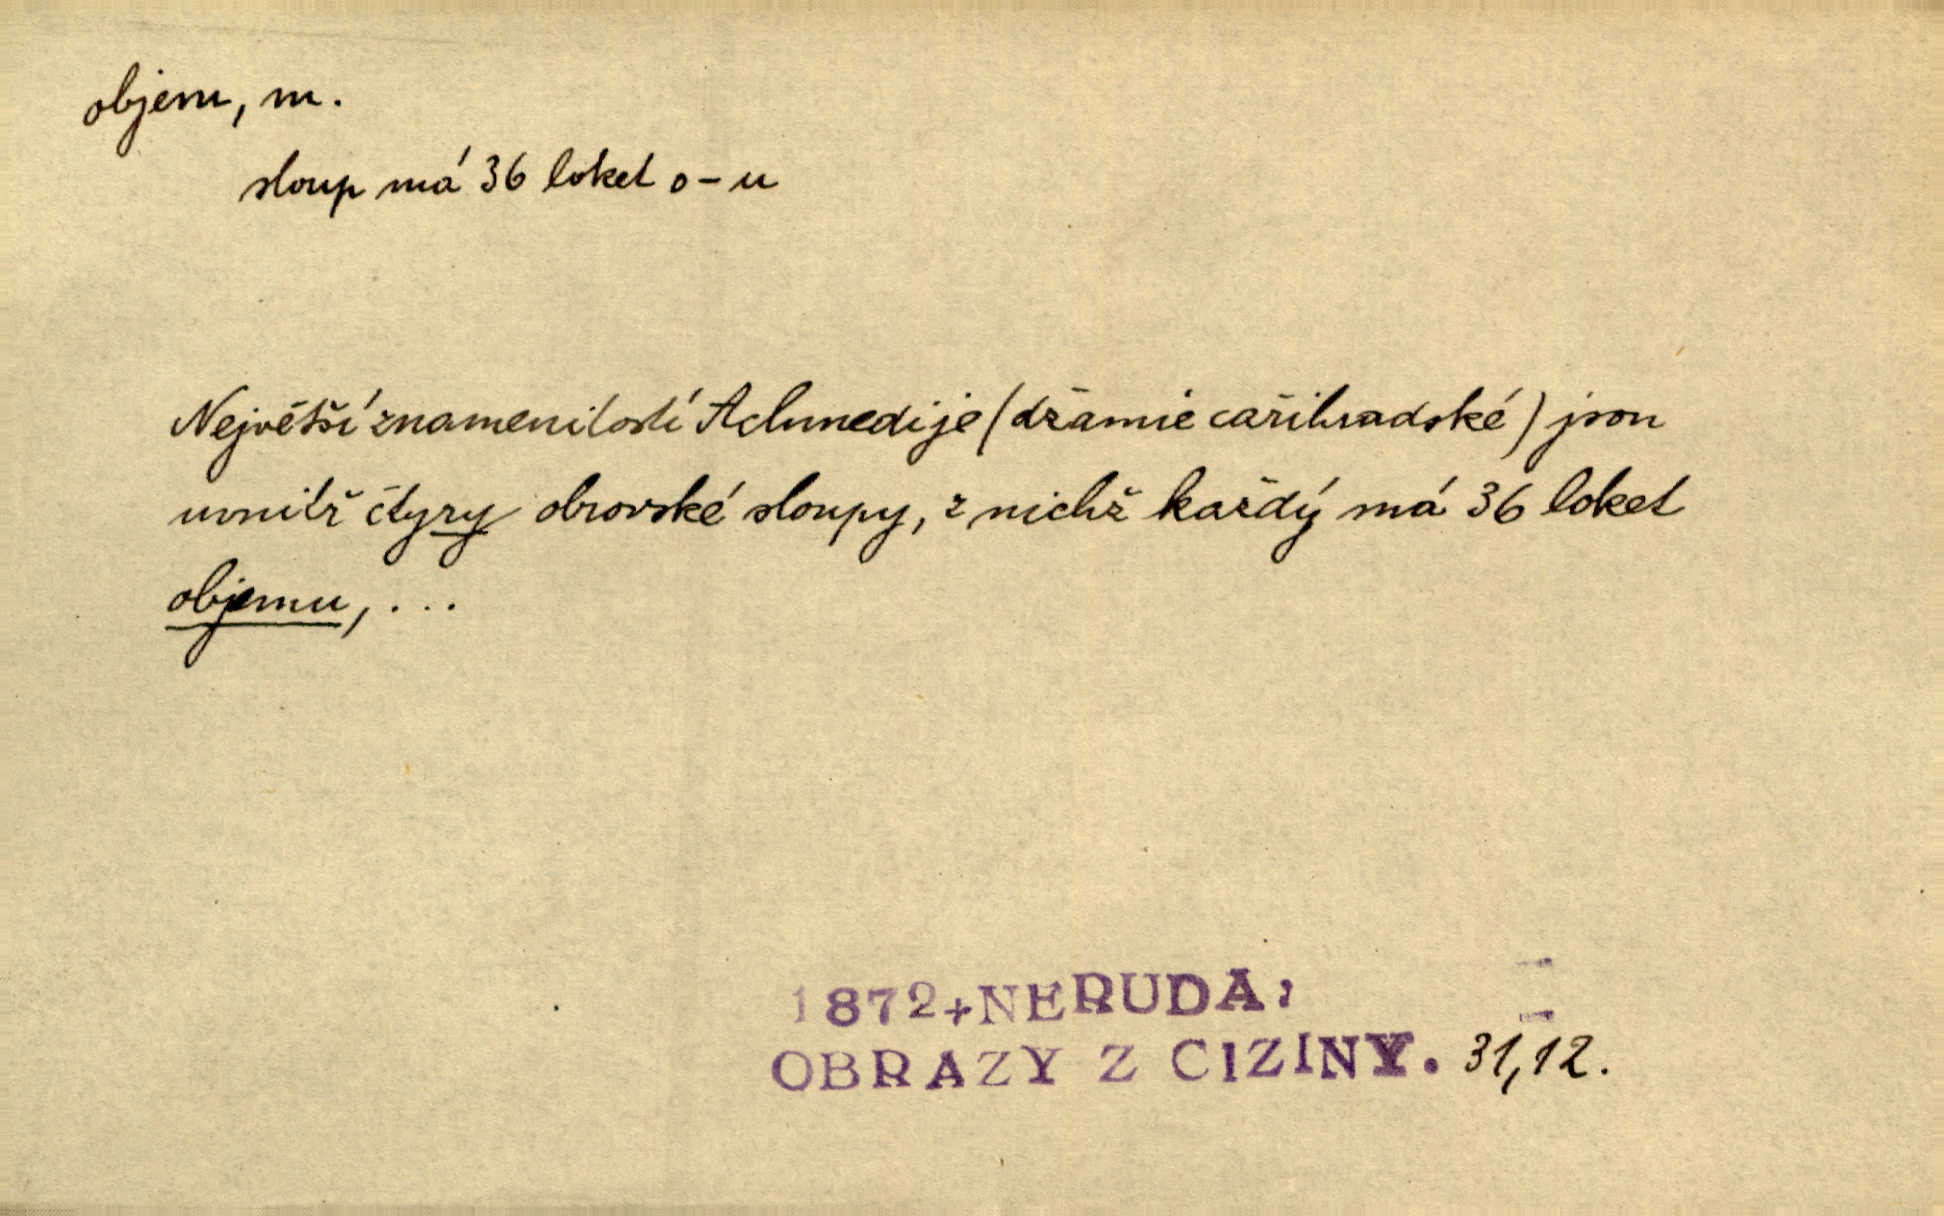 objem, m.
sloup má 36 loket o-u
Největší znamenitostí Achmedije (džamie cařihradské) jsou
uvnitř čtyry obrovské sloupy, z nichž každý má 36 loket
objemu, ...
1872+NERUDA:
OBRAZY Z CIZINY. 31,12.